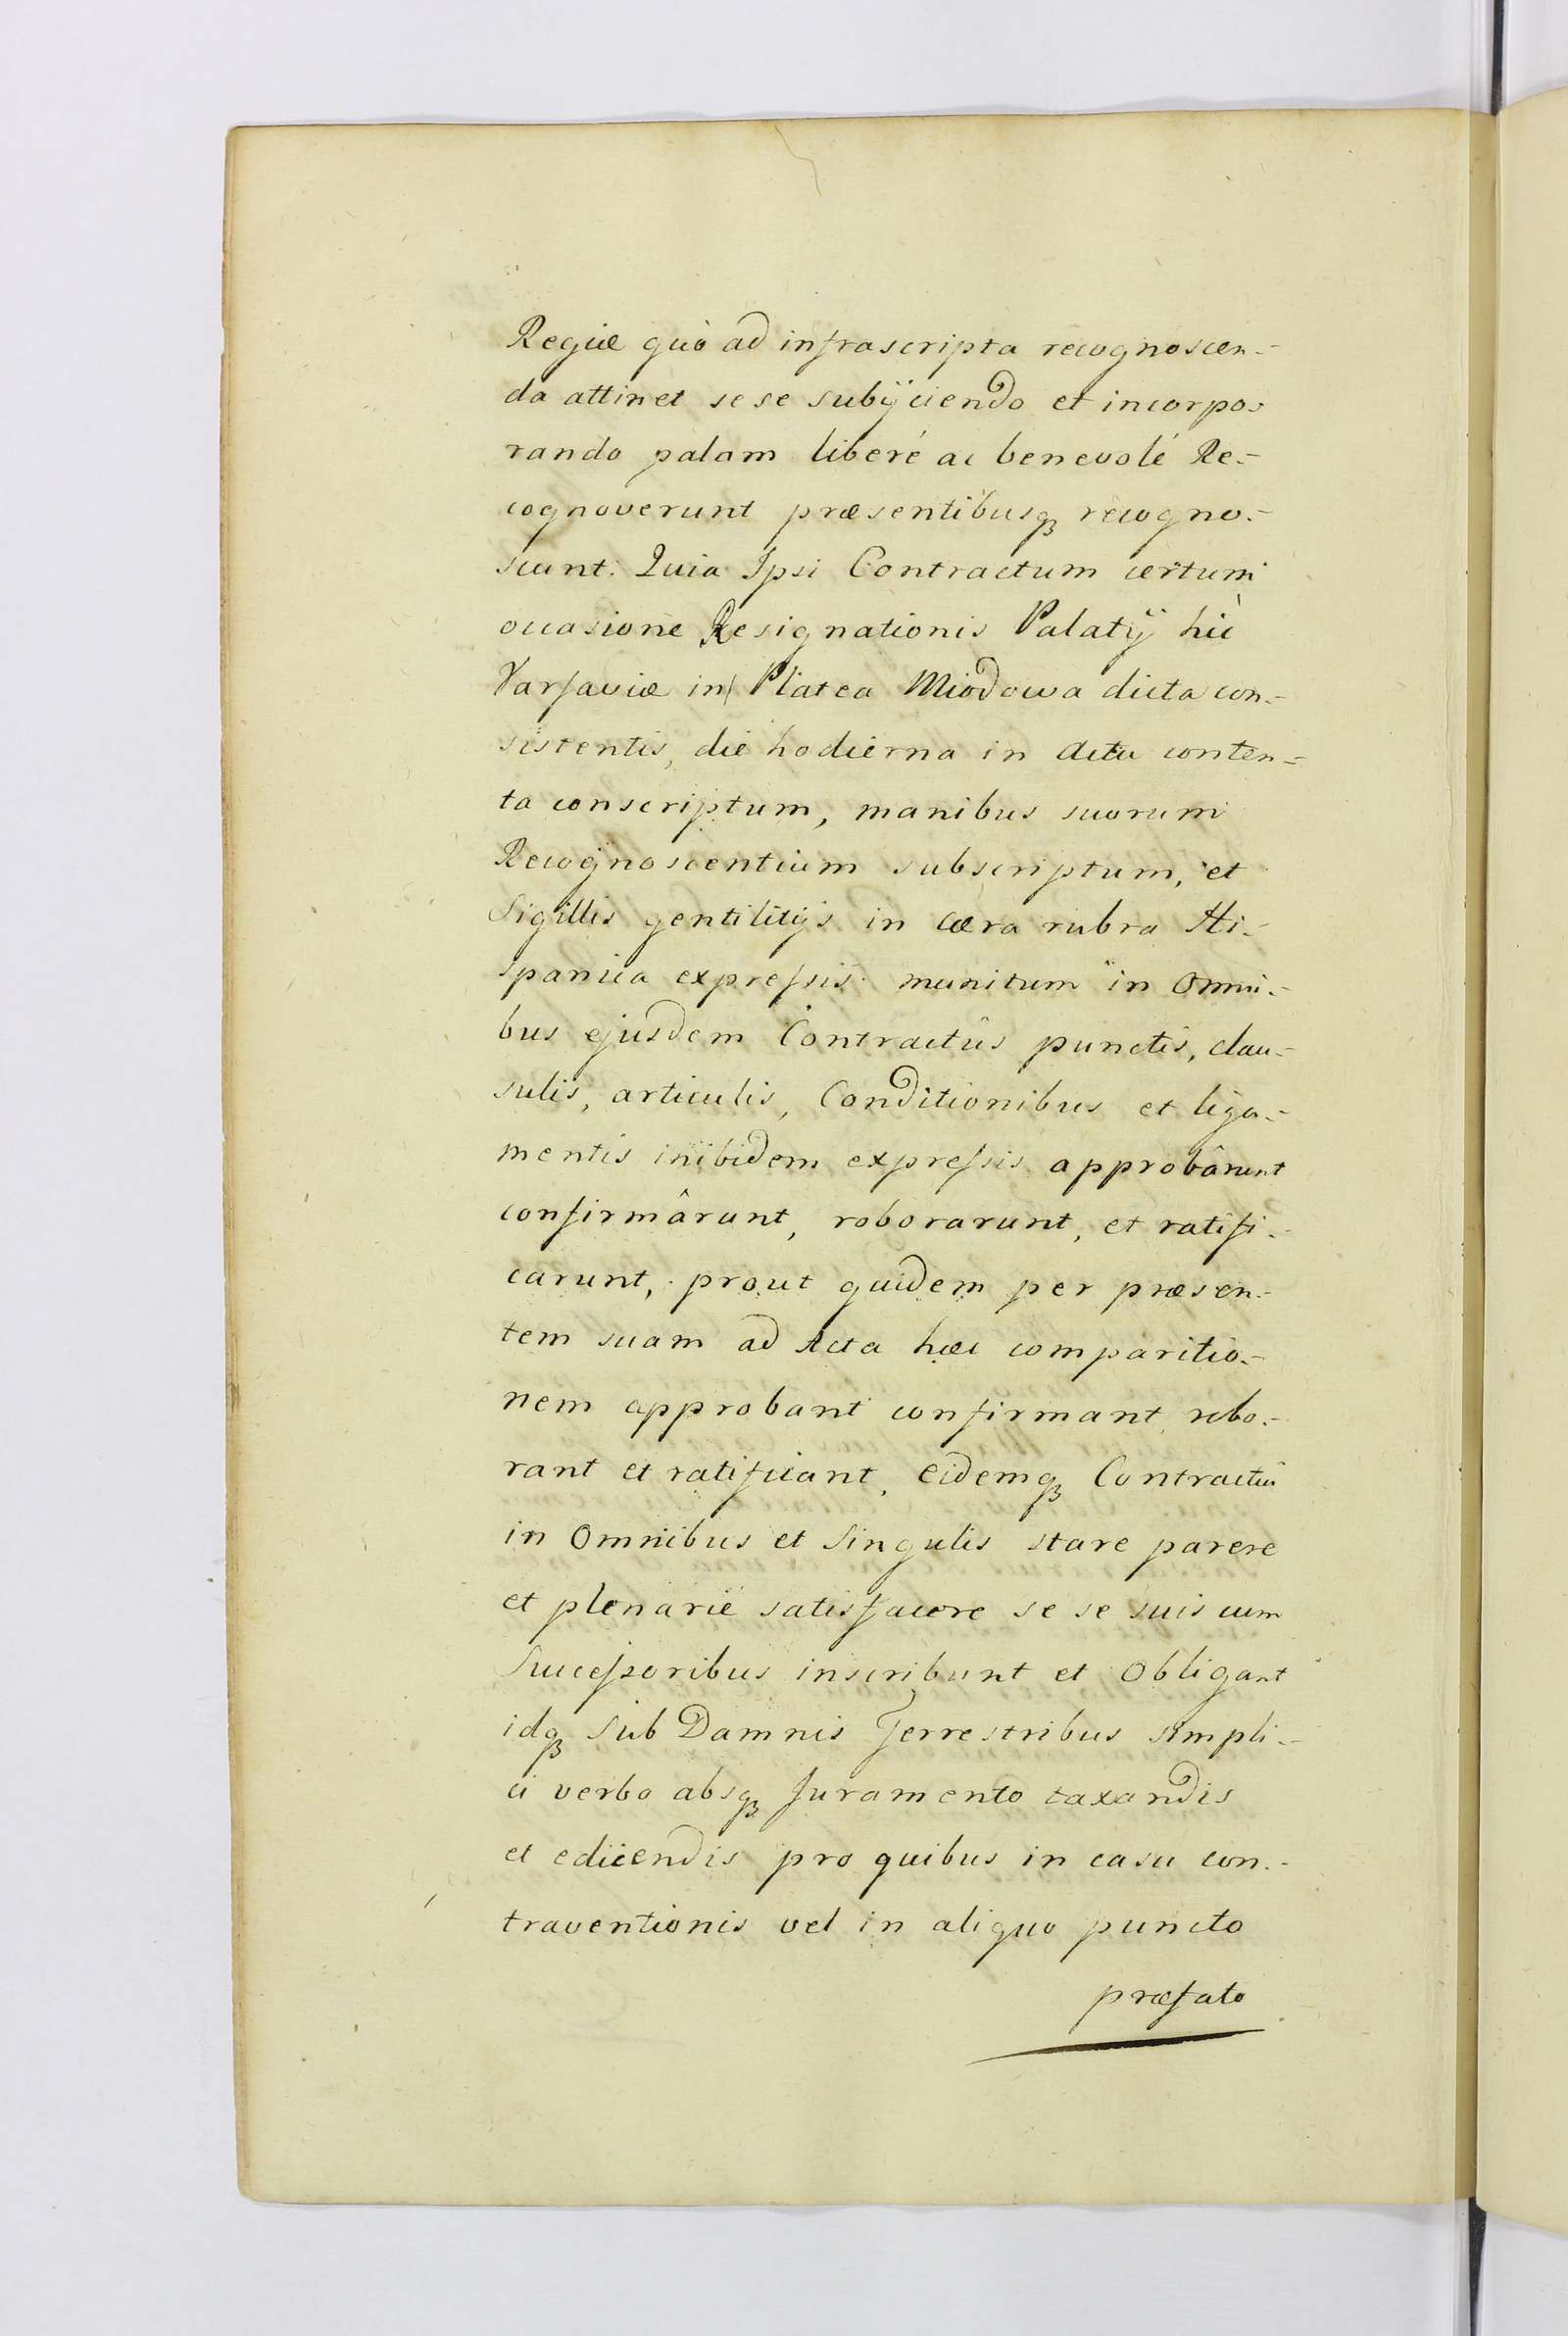 Regiæ quò ad infrascripta recognoscen=
da attinet se se subÿciendo et incorpo=
rando palam liberé ac benevolé Re=
cognoverunt præsentibusqꝫ recogno=
scunt. Quia Ipsi Contractum certum
occasione Resignationis Palatÿ hìc
Varsaviæ in Platea Miodowa dicta con=
sistentis, die hodierna in Actu conten=
ta conscriptum, manibus suorum
Recognoscentium subscriptum, et
Sigillis gentilitÿs in Cæra rubra Hi=
spanica expressis munitum in Omni=
bus ejusdem Contractûs punctis, clau=
sulis, articulis, Conditionibus et liga=
mentis inibidem expressis approbârunt
confirmârunt, roborarunt, et ratifi=
carunt, prout quidem per præsen=
tem suam ad Acta hæc comparitio=
nem approbant confirmant, robo=
rant et ratificant, eidemqꝫ Contractui
in Omnibus et Singulis stare parere
et plenarié satisfacere se se suis cum
Successoribus inscribunt et Obligant
idqꝫ Sub Damnis Terrestribus simpli=
ci verbo absqꝫ Juramento taxandis
et edicendis pro quibus in casu con=
traventionis vel in aliquo puncto
præfato